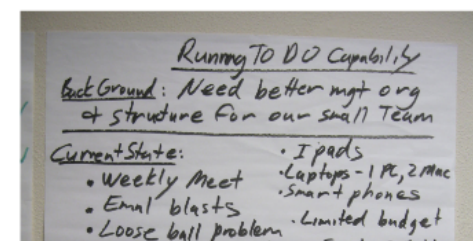 Running TO DO Capability
BackGround: Need better mgt org
& structure for our small Team
Current State:
• Weekly Meet
• Email blasts
• Loose ball problem
• Ipads
• Laptops - 1 PC, 2 Mac
• Smart phones
• Limited budget